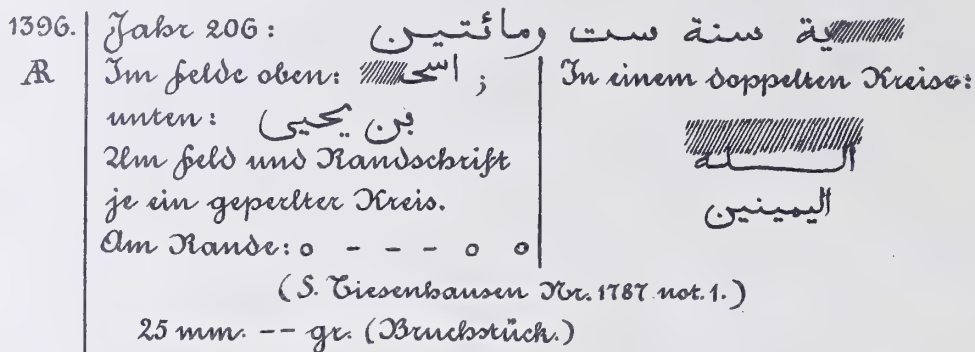 1396. Jahr 206: ية سنة ست ومائتين
AR Im Felde oben: اسح ;
unten: بن يحيى
Um Feld und Randschrift
je ein geperlter Kreis.
Am Rande: o - - - o o
In einem doppelten Kreise:
السلة
اليمينين
(S. Tiesenhausen Nr. 1787 not. 1.)
25 mm. -- gr. (Bruchstück.)